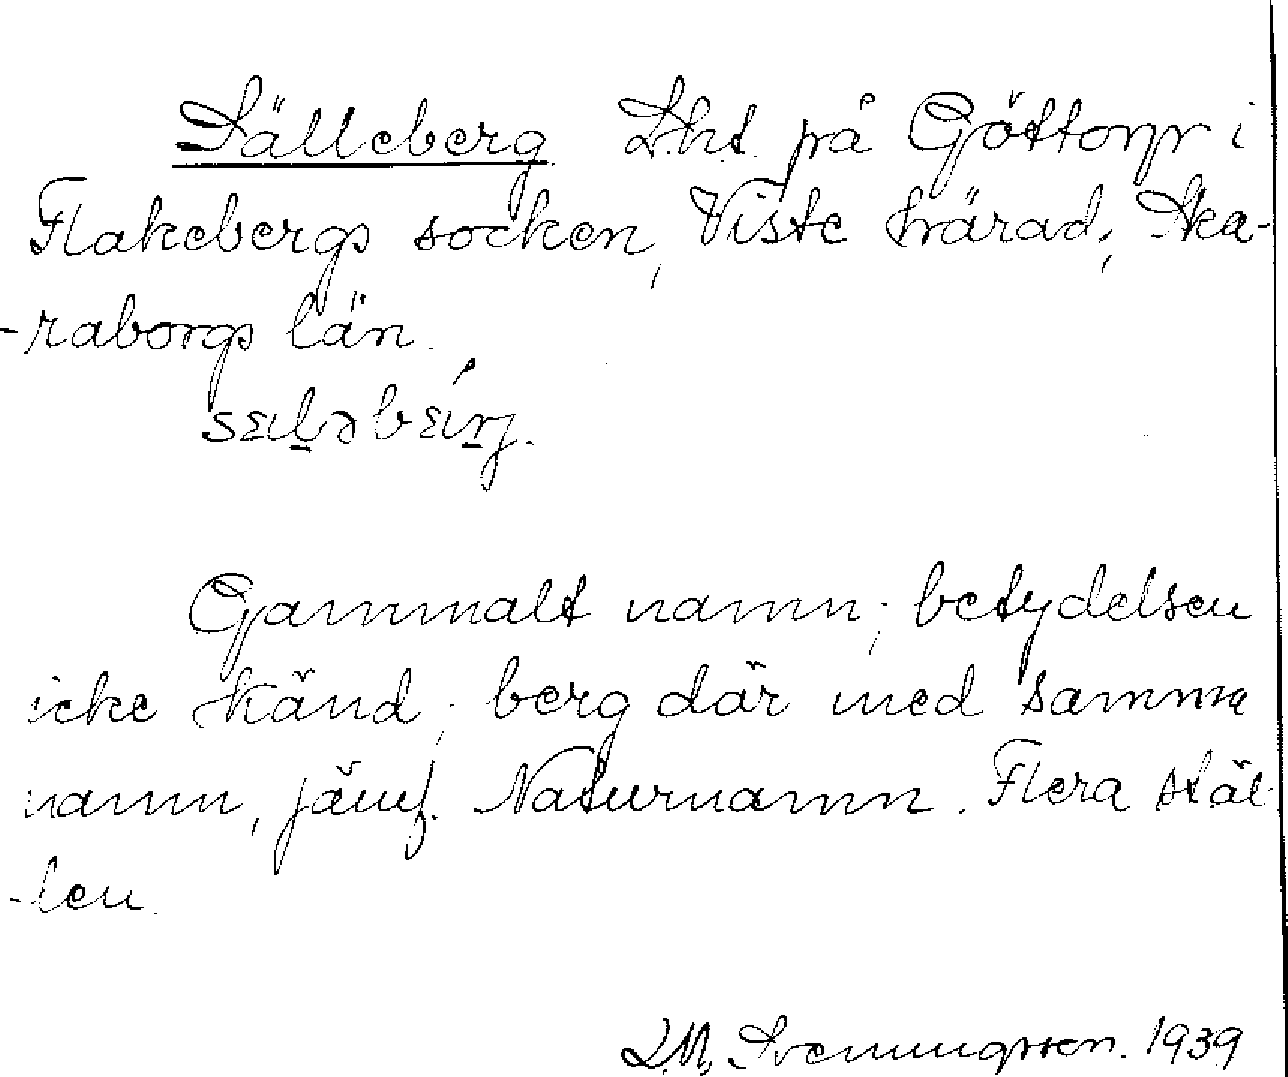 Sälleberg. Lht. på Göttorp i
Flakebergs socken, Viste härad, Ska-
-raborgs län.
Gammalt namn; betydelsen
icke känd; berg där med samma
namn, jämf. Naturnamn. Flera stäl-
-len.
L.M. Svenungsson. 1939